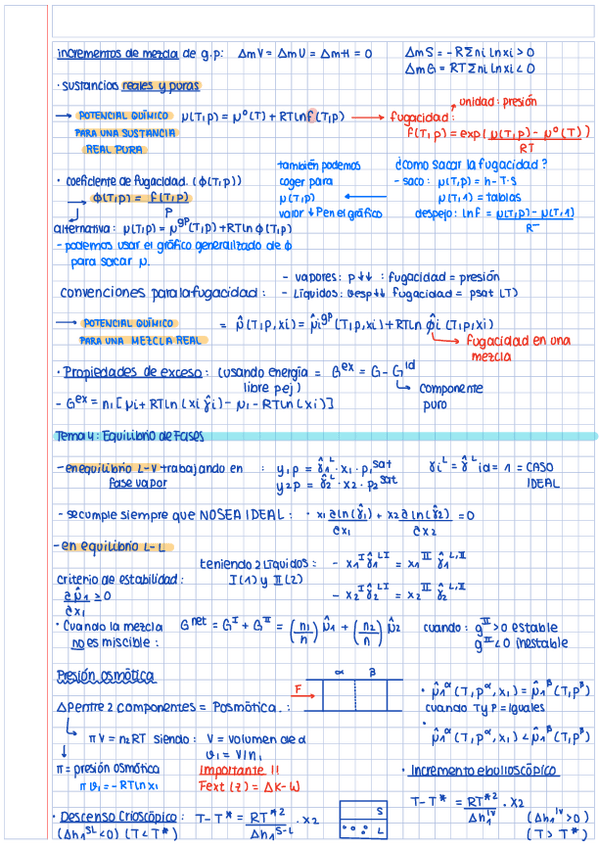 incrementos de mezcla de g.p: ΔmV = ΔmU = ΔmH = 0 ΔmS = -RΣni lnxi > 0
ΔmG = RTΣni lnxi < 0
· sustancias reales y puras
→ POTENCIAL QUÍMICO PARA UNA SUSTANCIA REAL PURA μ(T,p) = μ°(T) + RTlnf(T,p) → fugacidad: unidad: presión
f(T,p) = exp(μ(T,p) - μ°(T) / RT)
· coeficiente de fugacidad. (ϕ(T,p))
→ ϕ(T,p) = f(T,p) / P
también podemos
coger para
μ(T,p) ←
valor ↓P en el gráfico
¿como sacar la fugacidad?
- saco: μ(T,p) = h-T·S
μ(T,1) = tablas
despejo: lnf = μ(T,p) - μ(T,1) / R
alternativa: μ(T,p) = μ^gp(T,p) + RTln ϕ(T,p)
- podemos usar el gráfico generalizado de ϕ
para sacar μ.
convenciones para la fugacidad: - vapores: p↓↓ : fugacidad = presión
- Líquidos: p↓↓ fugacidad = psat (T)
→ POTENCIAL QUÍMICO PARA UNA MEZCLA REAL = μ̂(T,p,xi) = μ̂i^gp(T,p,xi) + RTln ϕ̂i (T,p,xi)
→ fugacidad en una
mezcla
· Propiedades de exceso: (usando energía libre pej) = G^ex = G - G^id
→ componente
puro
- G^ex = n1[μi + RTln(xi γ̂i) - μi - RTln(xi)]
Tema 4: Equilibrio de Fases
- en equilibrio L-V trabajando en fase vapor : y1p = γ̂1^L · x1 · p1^sat
y2p = γ̂2^L · x2 · p2^sat
γi^L = γ̂^L id = 1 = CASO
IDEAL
- se cumple siempre que NO SEA IDEAL : · x1 ∂ln(γ̂1) / ∂x1 + x2 ∂ln(γ̂2) / ∂x2 = 0
- en equilibrio L-L
teniendo 2 Líquidos: - x1^I γ̂1^LI = x1^II γ̂1^L,II
I(1) y II(2)
- x2^I γ̂2^LI = x2^II γ̂2^L,II
criterio de estabilidad:
∂μ̂1 / ∂x1 ≥ 0
· Cuando la mezcla
no es miscible :
G^net = G^I + G^II = (n1/n) μ̂1 + (n2/n) μ̂2 cuando: g^II > 0 estable
g^II < 0 inestable
Presión osmótica
α β
F →
ΔP entre 2 componentes = Posmótica.:
· μ̂1^α (T,p^α,x1) = μ̂1^β (T,p^β)
cuando T y P = iguales
· μ̂1^α (T,p^α,x1) < μ̂1^β (T,p^β)
πV = n2RT siendo: V = volumen de α
v1 = V/n1
π = presión osmótica
πv1 = -RTlnx1
Importante !!
Fext (z) = ΔK-W
· Incremento ebulloscópico
T-T* = RT*² / Δh1^lv · x2 (Δh1^lv > 0)
(T > T*)
· Descenso Crioscópico: T-T* = RT*² / Δh1^S-L · x2
(Δh1^SL < 0) (T < T*)
S
L